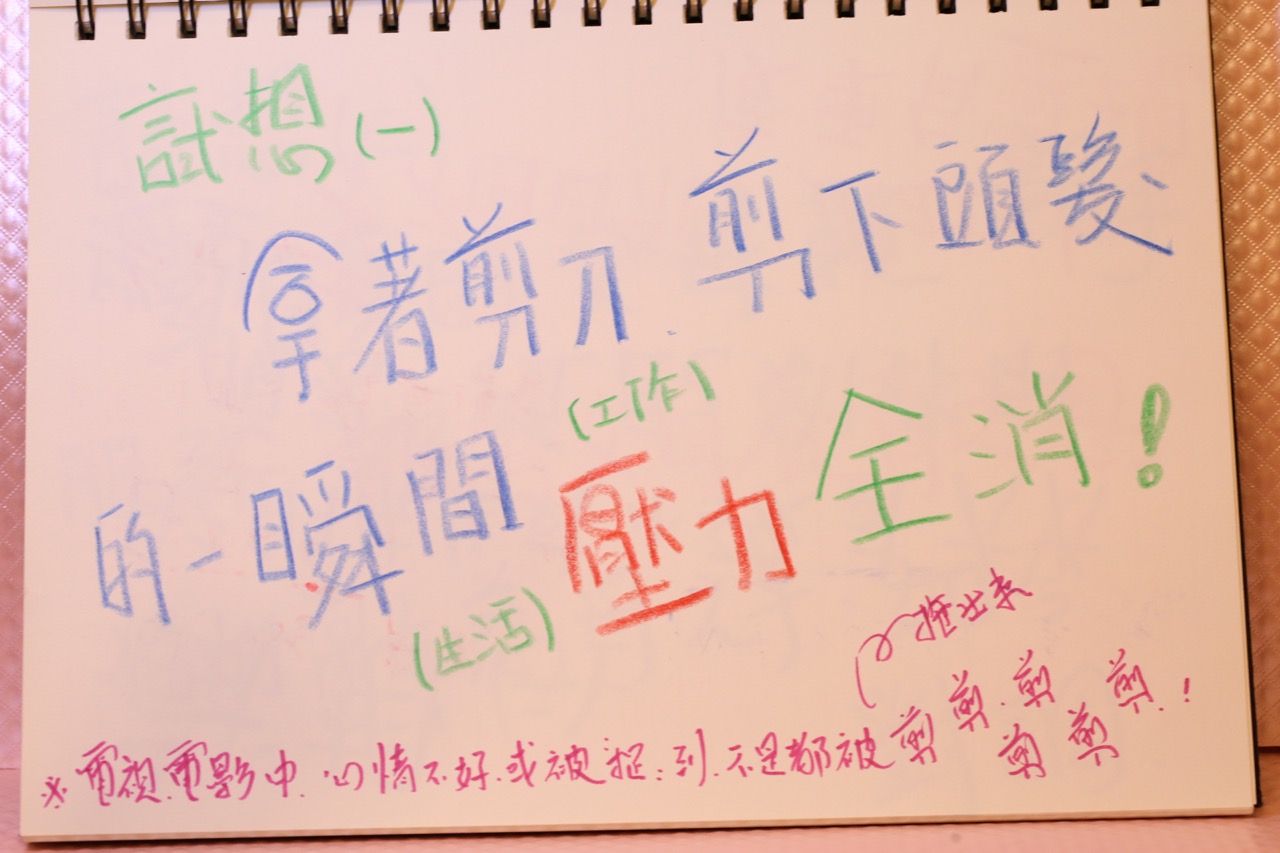 試想(一)
拿著剪刀.剪下頭髮
(工作)
的一瞬間 壓力 全消!
(生活)
拖出來
※電視.電影中.心情不好.或被抓到.不是都被剪剪.剪剪剪剪.!